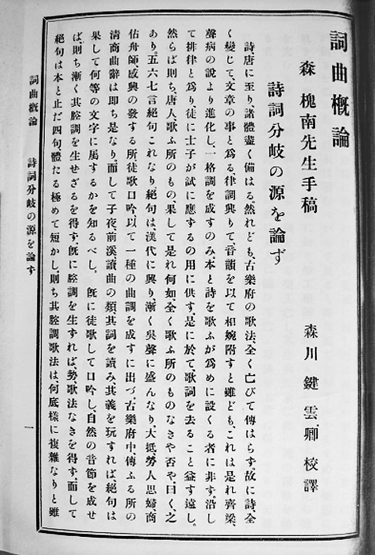 詞曲概論
森槐南先生手稿
森川鍵雲卿校譯
詩詞分岐の源を論ず
詩唐に至り、諸體盡く備はる、然れども、古樂府の歌法全く亡びて傳はらず、故に詩、全
く變じて、文章の事と爲る、律詞興りて音韻を以て相婉附すと雖ども、これは是れ齊梁
聲病の說より進化し、一格調を成すのみ、本と詩を歌ふが爲めに設くる者に非ず、沿し
て排律と爲り、徒に士子が試に應するの用に供す、是に於て歌詞を去ること益す遠し、
然らば則ち、唐人歌ふ所のもの、果して是れ何如、全く歌ふ所のものなきや否や、曰く、之
あり、五六七言絕句これなり、絕句は、漢代に興り、漸く吳聲に盛んなり、大抵勞人思婦、商
佑舟師感興の發する所、徒歌口吟、以て一種の曲調を成すに出づ、古樂府中、傳ふる所の
清商曲辭は即ち是なり、而して子夜、前溪、讀曲の類、其詞を讀み、其義を玩すれば、絕句は
果して何等の文字に屬するかを知るべし、既に徒歌して口吟し、自然の音節を成せ
ば、則ち漸く其腔調を生ぜざるを得ず、既に腔調を生ずれば、勢歌法なきを得ず、而して
絕句は本と止だ四句、體たる極めて短かし、則ち其腔調歌法は、何底樣に複雜なりと雖
詞曲概論 詩詞分岐の源を論ず
一